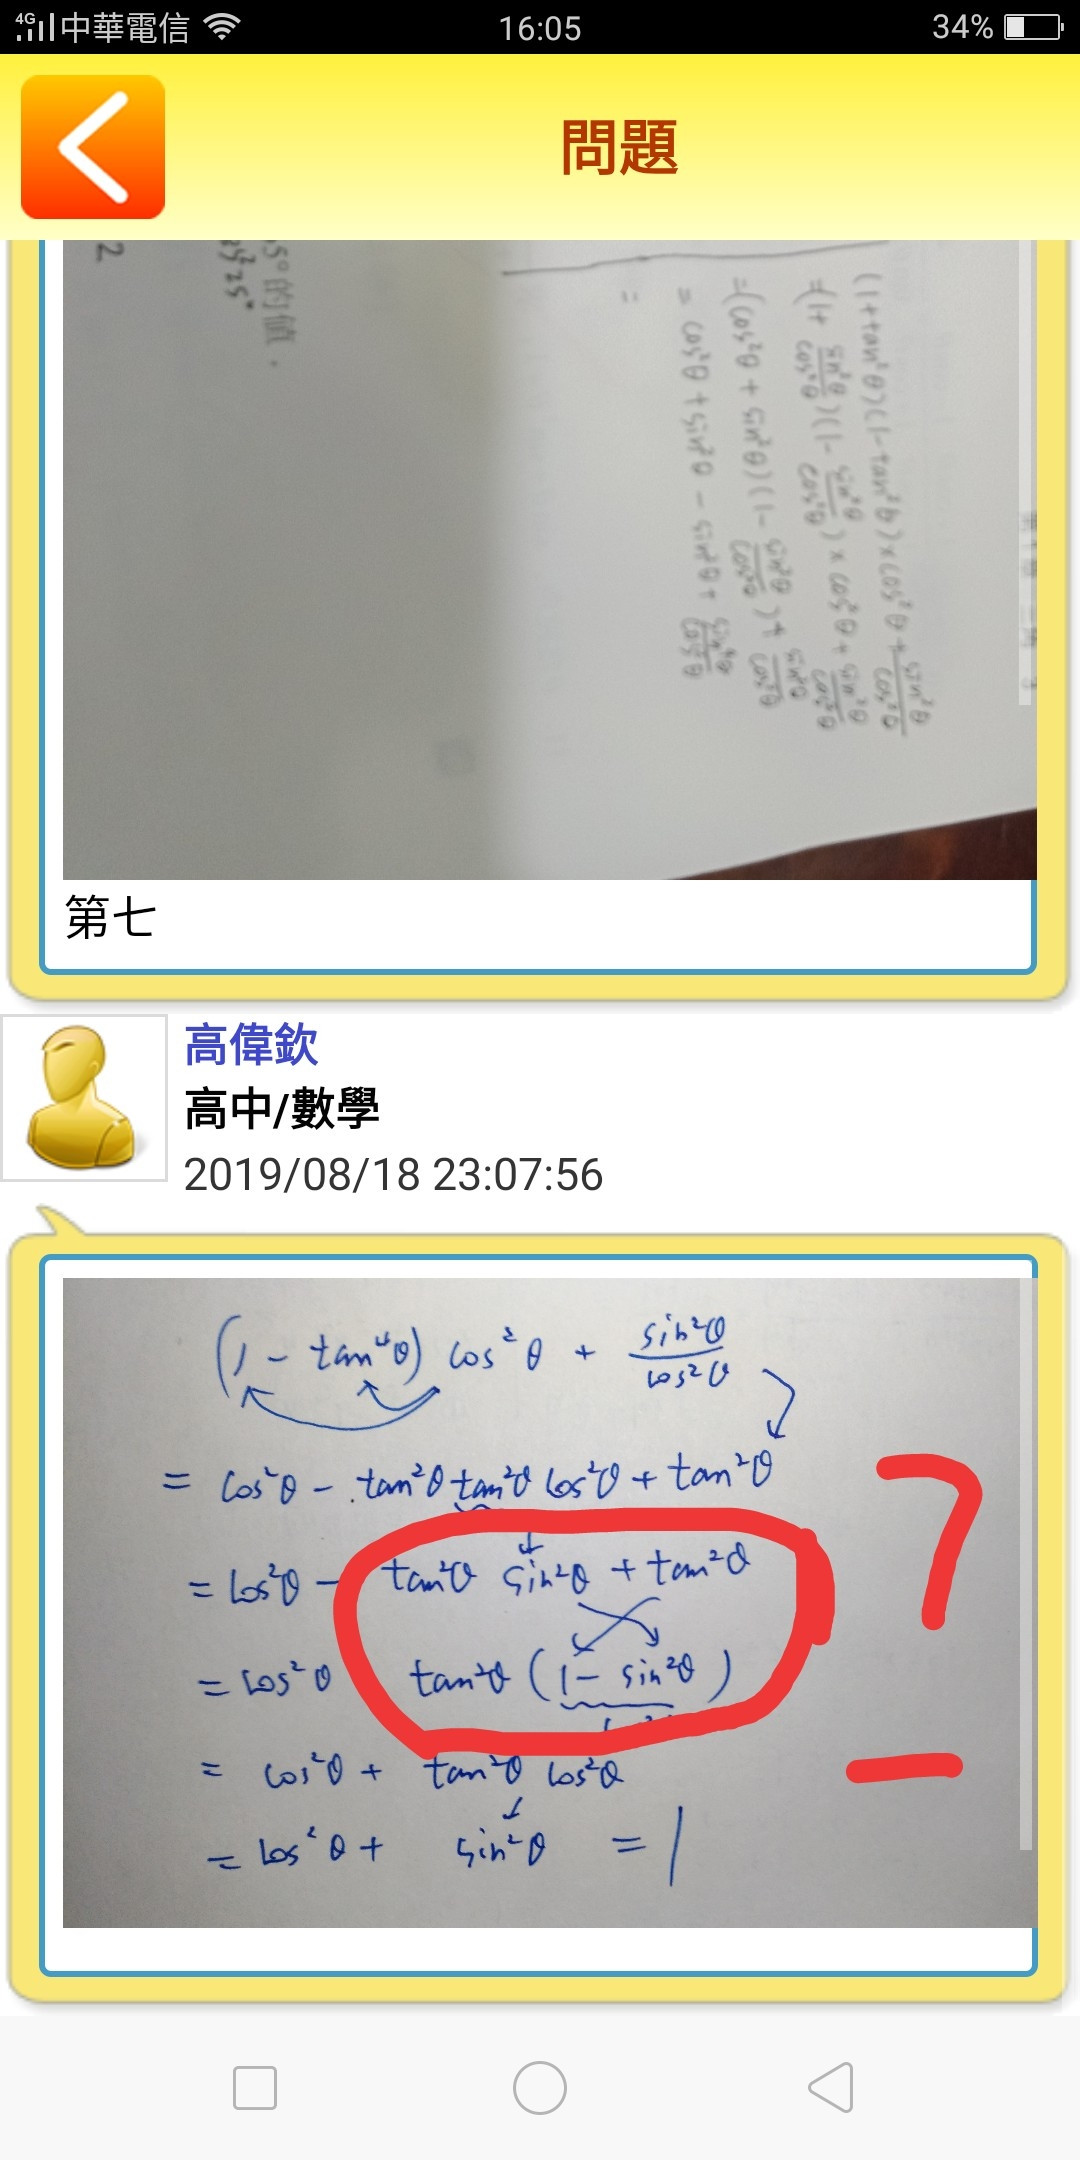 4G 中華電信 16:05 34%
問題
2
5°的值.
(1+tan²θ)(1-tan²θ)×cos²θ+sin²θ/cos²θ
=(1+sin²θ/cos²θ)(1-sin²θ/cos²θ)×cos²θ+sin²θ/cos²θ
=(cos²θ+sin²θ)(1-sin²θ/cos²θ)+sin²θ/cos²θ
=
第七
高偉欽
高中/數學
2019/08/18 23:07:56
(1-tan⁴θ)cos²θ+sin²θ/cos²θ
=cos²θ-tan²θtan²θcos²θ+tan²θ
=cos²θ-tan²θ sin²θ+tan²θ
=cos²θ tan²θ(1-sin²θ)
=cos²θ+tan²θ cos²θ
=cos²θ+sin²θ=1
?